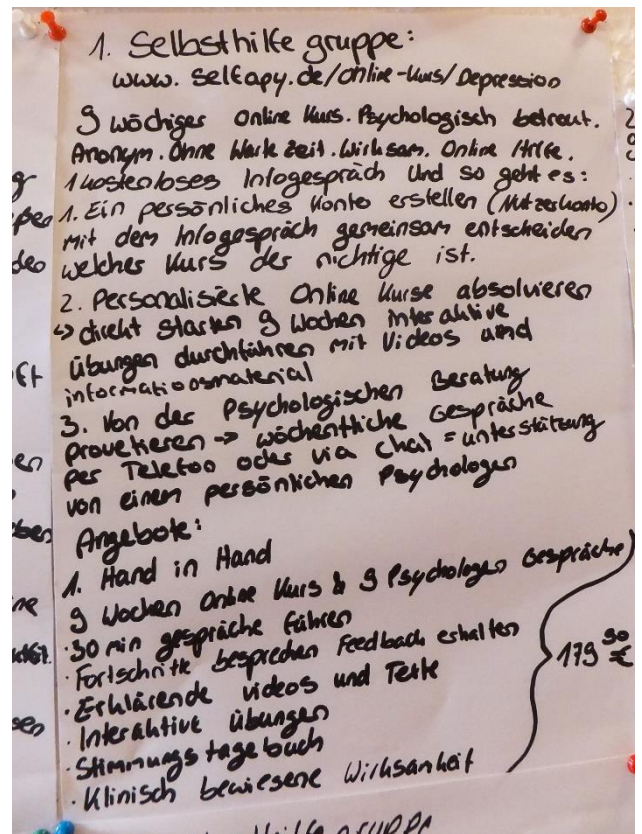 1. Selbsthilfe gruppe:
www.selfapy.de/online-Kurs/Depression
9 wöchiger Online Kurs. Psychologisch betreut.
Anonym. Ohne Warte Zeit. Wirksam. Online Hilfe.
1 kostenloses Infogespräch Und so geht es:
1. Ein persönliches Konto erstellen (Nutzerkonto)
mit dem Infogespräch gemeinsam entscheiden
welcher Kurs der richtige ist.
2. Personalisierte Online Kurse absolvieren
↳ direkt starten 9 Wochen interaktive
übungen durchführen mit Videos und
informationsmaterial
3. Von der Psychologischen Beratung
provetieren → wöchentliche Gespräche
per Telefon oder via Chat = unterstützung
von einem persönlichen Psychologen
Angebote:
1. Hand in Hand
9 Wochen Online Kurs & 9 Psychologen Gespräche
· 30 min gespräche führen
· Fortschritte besprechen Feedback erhalten
· Erklärende videos und Texte
· Interaktive übungen
· Stimmungs tagebuch
· Klinisch bewiesene Wirksamkeit
179 90 €
gruppe